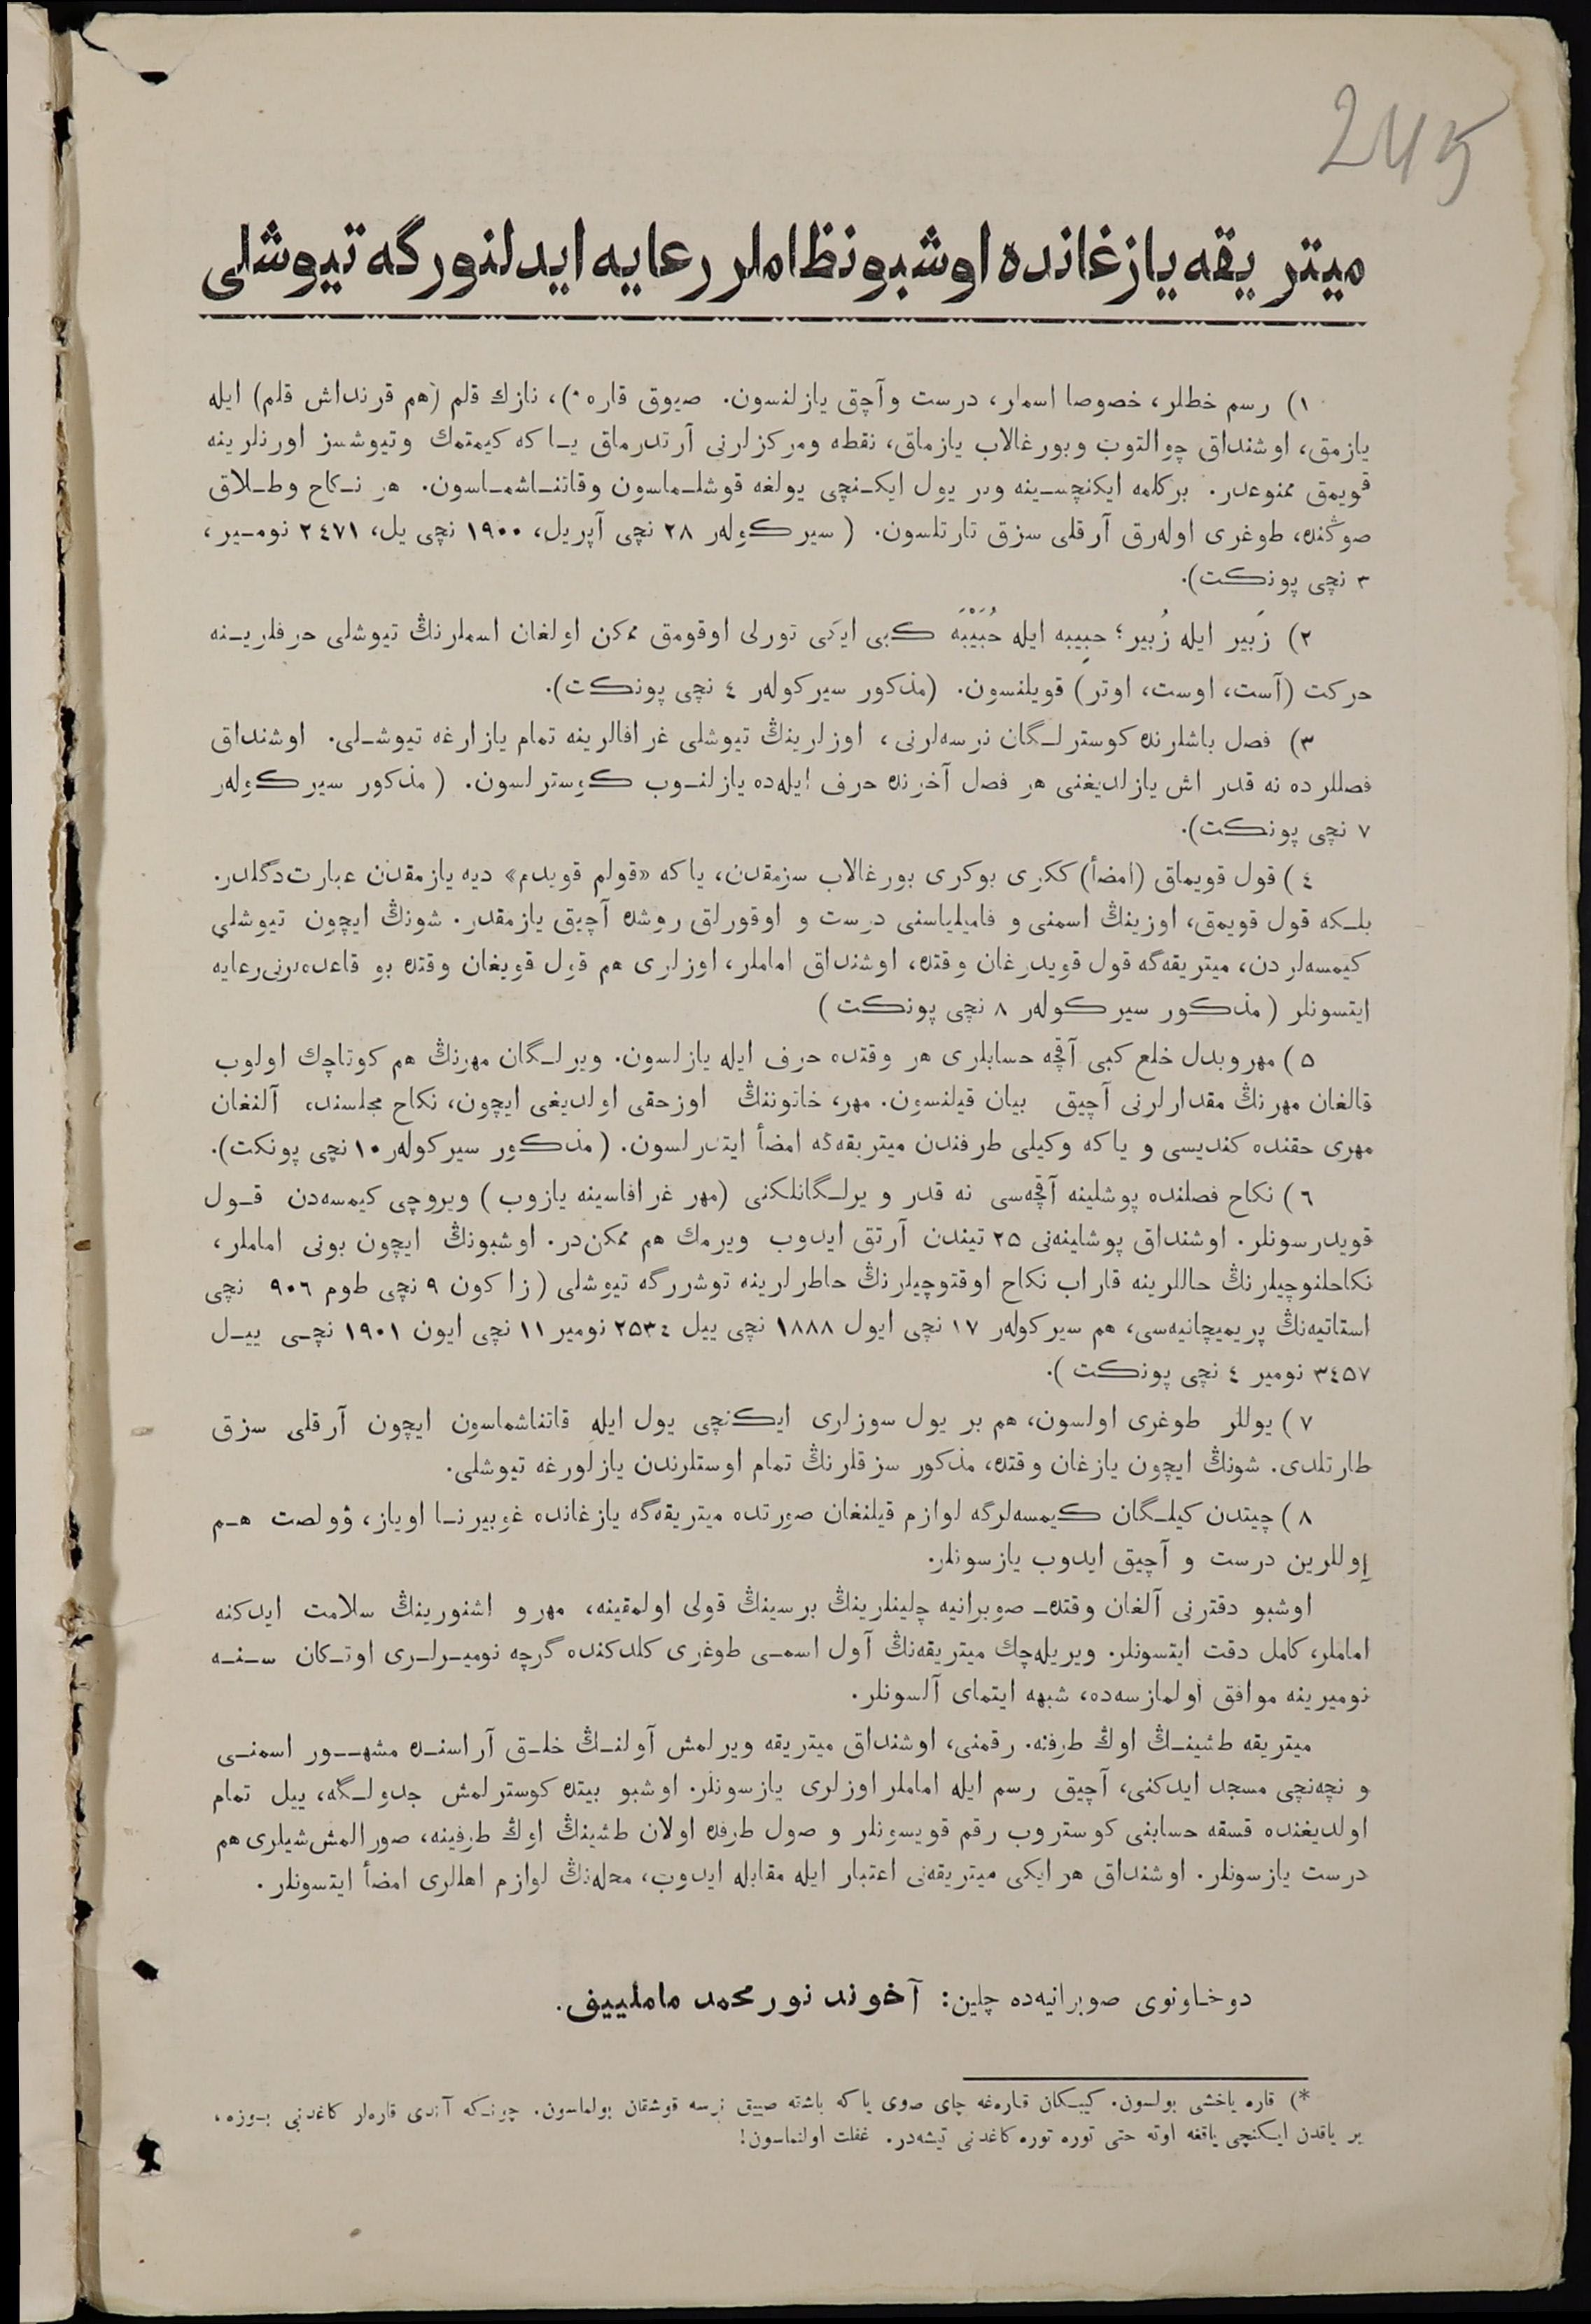 245
میتریقه یازغانده اوشبو نظاملر رعایه ایدلنورگه تیوشلی
١) رسم خطلر، خصوصا اسملر، درست وآچق یازلنسون. صیوق قاره *)، نازك قلم (هم قرنداش قلم) ایله
یازمق، اوشنداق چوالتوب وبورغالاب یازماق، نقطه ومرکزلرنی آرتدرماق یـا که کیمتمك وتیوشسز اورنلرینه
قویمق ممنوعدر. برکلمه ایکنچسـینه وبر یول ایکـنچی یولغه قوشلـماسون وقاتنـاشمـاسون. هر نـکاح وطـلاق
صوڭنده، طوغری اولەرق آرقلی سزق تارتلسون. ( سیرکولەر ٢٨ نچی آپریل، ١٩٠٠ نچی یل، ٢٤٧١ نومـیر،
٣ نچی پونکت).
٢) زَبیر ایله زُبیر؛ حبِیبه ایله حُبَیْبَه کبی ایکی تورلی اوقومق ممکن اولغان اسملرنڭ تیوشلی حرفلریـنه
حرکت (آست، اوست، اوتر) قویلنسون. (مذکور سیرکولەر ٤ نچی پونکت).
٣) فصل باشلرنده کوسترلـگان نرسەلرنی، اوزلرینڭ تیوشلی غرافالرینه تمام یازارغه تیوشـلی. اوشنداق
فصللرده نه قدر اش یازلدیغنی هر فصل آخرنده حرف ایلەده یازلنـوب کوسترلسون. ( مذکور سیرکولەر
٧ نچی پونکت).
٤) قول قویماق (امضأ) ککری بوکری بورغالاب سزمقدن، یاکه «قولم قویدم» دیه یازمقدن عبارت دگلدر.
بلـکه قول قویمق، اوزینڭ اسمنی و فامیلیاسنی درست و اوقورلق روشده آچیق یازمقدر. شونڭ ایچون تیوشلی
کیمسەلردن، میتریقەگه قول قویدرغان وقتده، اوشنداق اماملر، اوزلری هم قول قویغان وقتده بو قاعدەلرنی رعایه
ایتسونلر ( مذکور سیرکولەر ٨ نچی پونکت )
٥) مهر وبدل خلع کبی آقچه حسابلری هر وقتده حرف ایله یازلسون. ویرلـگان مهرنڭ هم کوتاچك اولوب
قالغان مهرنڭ مقدارلرنی آچیق بیان قیلنسون. مهر، خاتوننڭ اوزحقی اولدیغی ایچون، نکاح مجلسنده آلنغان
مهری حقنده کندیسی و یاکه وکیلی طرفندن میتریقەگه امضأ ایتدرلسون. (مذکور سیرکولەر ١٠ نچی پونکت).
٦) نکاح فصلنده پوشلینه آقچەسی نه قدر و یرلـگانلکنی (مهر غرافاسینه یازوب) ویروچی کیمسەدن قـول
قویدرسونلر. اوشنداق پوشلینەنی ٢٥ تیندن آرتق ایدوب ویرمك هم ممکن در. اوشبونڭ ایچون بونی اماملر،
نکاحلنوچیلرنڭ حاللرینه قاراب نکاح اوقتوچیلرنڭ خاطرلرینه توشررگه تیوشلی (زاکون ٩ نچی طوم ٩٠٦ نچی
استاتیەنڭ پریمیچانیەسی، هم سیرکولەر ١٧ نچی ایول ١٨٨٨ نچی ییل ٢٥٣٤ نومیر ١١ نچی ایون ١٩٠١ نچـی ییـل
٣٤٥٧ نومیر ٤ نچی پونکت ).
٧) یوللر طوغری اولسون، هم بر یول سوزلری ایکنچی یول ایله قاتناشماسون ایچون آرقلی سزق
طارتلدی. شونڭ ایچون یازغان وقتده، مذکور سزقلرنڭ تمام اوستلرندن یازلورغه تیوشلی.
٨) چیتدن کیلـگان کیمسەلرگه لوازم قیلنغان صورتده میتریقەگه یازغانده غوبیرنـا اویاز، ۋولصت هـم
اوللرین درست و آچیق ایدوب یازسونلر.
اوشبو دفترنی آلغان وقتدهـ صوبرانیه چلینلرینڭ برسینڭ قولی اولمقینه، مهر و اشنورینڭ سلامت ایدکنه
اماملر، کامل دقت ایتسونلر. ویریلەچك میتریقەنڭ آول اسمـی طوغری کلدکنده گرچه نومیـرلـری اوتـکان سـنـه
نومیرینه موافق اولمازسەده، شبهه ایتمای آلسونلر.
میتریقه طشینـڭ اوڭ طرفنه. رقمنی، اوشنداق میتریقه ویرلمش آولنـڭ خلـق آراسنـده مشهــور اسمنـی
و نچەنچی مسجد ایدکنی، آچیق رسم ایله اماملر اوزلری یازسونلر. اوشبو بیتده کوسترلمش جدولـگه، ییل تمام
اولدیغنده قسقه حسابنی کوستروب رقم قویسونلر و صول طرفده اولان طشینڭ اوڭ طرفینه، صورالمش شیلری هم
درست یازسونلر. اوشنداق هر ایکی میتریقەنی اعتبار ایله مقابله ایدوب، محلەنڭ لوازم اهاللری امضأ ایتسونلر.
دوخاونوی صوبرانیەده چلین: آخوند نورمحمد ماملییف.
*) قاره یاخشی بولسون. کیبکان قارەغه چای صوی یاکه باشته صییق نرسه قوشقان بولماسون. چونـکه آندی قارەلر کاغدنی بـوزه،
بر یاقدن ایکنچی یاقغه اوته حتی توره توره کاغدنی تیشەدر. غفلت اولنماسون!